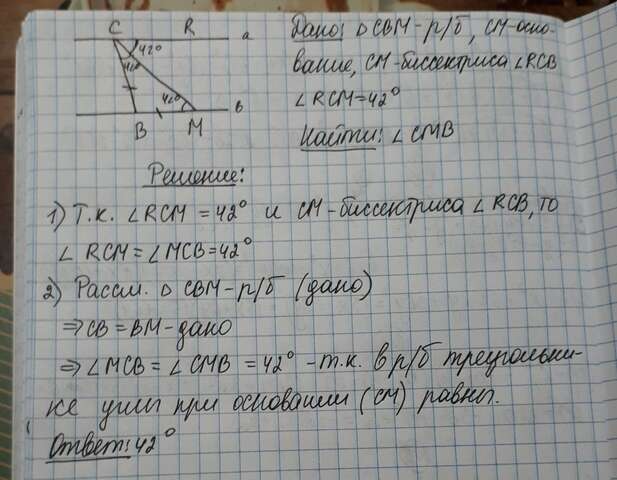 C R a
42°
42°
42° в
B M
Дано: △ CBM - р/б, CM-осно-
вание, CM-биссектриса ∠RCB
∠RCM=42°
Найти: ∠CMB
Решение:
1) Т.к. ∠RCM = 42° и CM-биссектриса ∠RCB, то
∠ RCM = ∠MCB = 42°
2) Рассм. △ CBM - р/б (дано)
⇒ CB = BM - дано
⇒ ∠MCB = ∠CMB = 42° - т.к. в р/б треугольни-
ке углы при основании (CM) равны.
Ответ: 42°